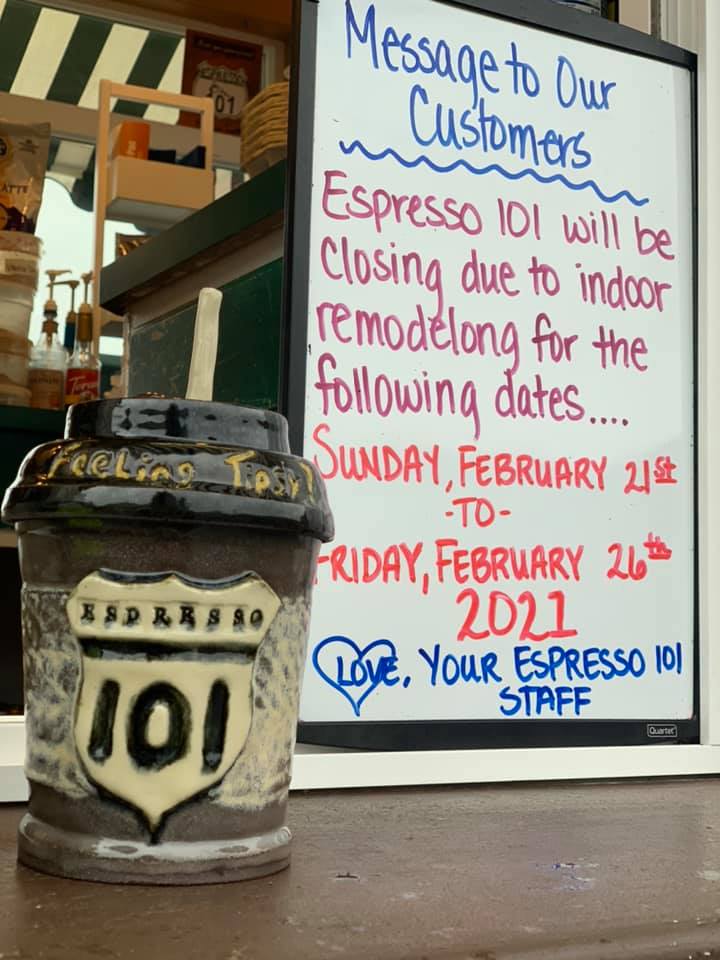 Message to Our
Customers
Espresso 101 will be
closing due to indoor
remodelong for the
following dates....
SUNDAY, FEBRUARY 21st
-TO-
FRIDAY, FEBRUARY 26th
2021
LOVE, YOUR ESPRESSO 101
STAFF
Quartet
Feeling Tipsy?
ESPRESSO
101
ESPRESSO
101
ATTE
Torani